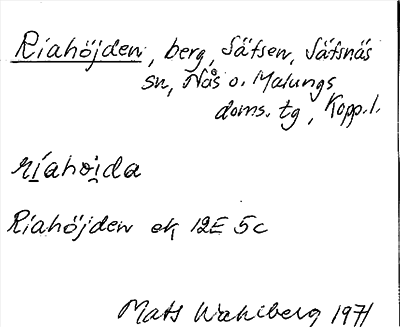 Riahöjden, berg, Säfsen, Säfsnäs
sn, Nås o. Malungs
doms. tg, Kopp. l.
ríahọida
Riahöjden ek 12E 5c
Mats Wahlberg 1971